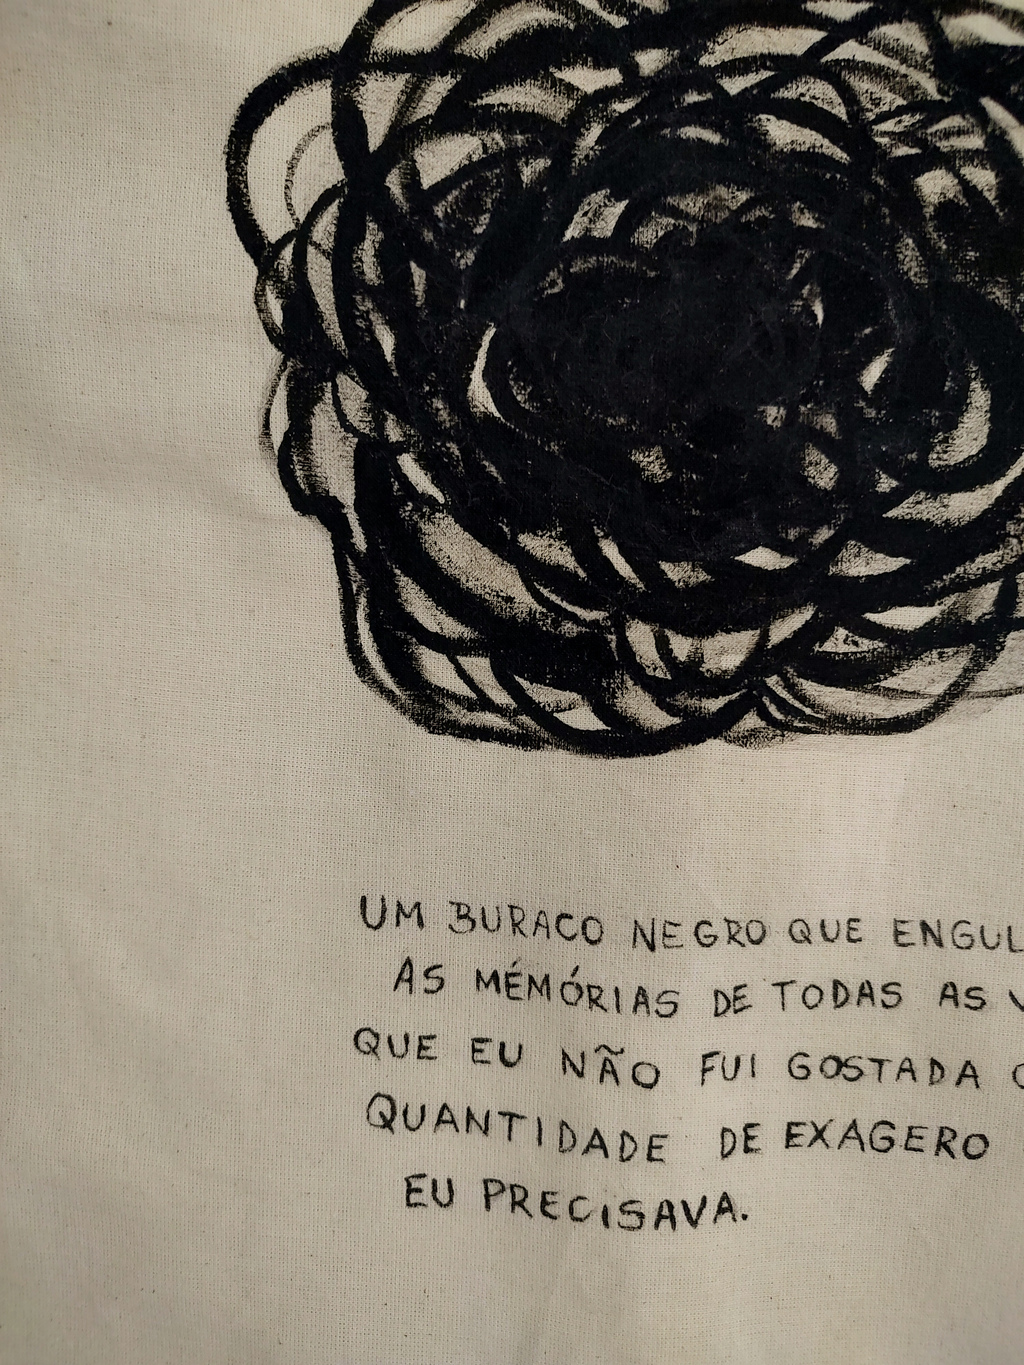 UM BURACO NEGRO QUE ENGUL
AS MÉMÓRIAS DE TODAS AS V
QUE EU NÃO FUI GOSTADA
QUANTIDADE DE EXAGERO
EU PRECISAVA.